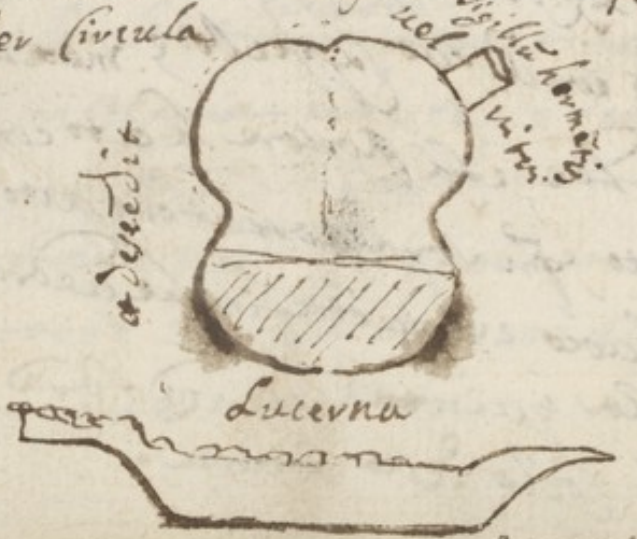 er Circula
vel
sigillũ hermetis
vitri.
& desцedit
Lucerna